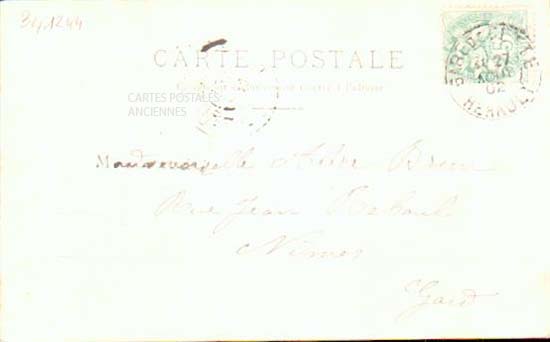 34.1244
CARTE POSTALE
Ce côté est exclusivement réservé à l'adresse
CARTES POSTALES
ANCIENNES
HERAULT
27
AOUT
02
Mademoiselle Brun
Rue Jean Reboul
Nîmes
Gard